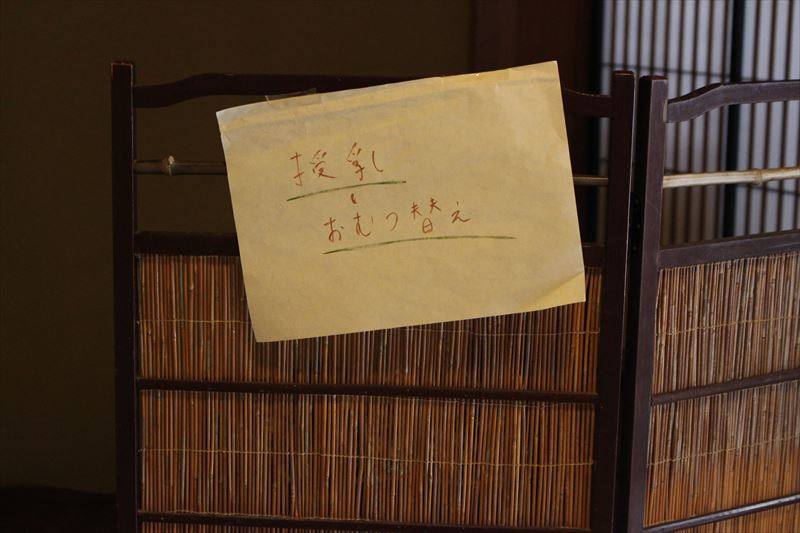 授乳
おむつ替え